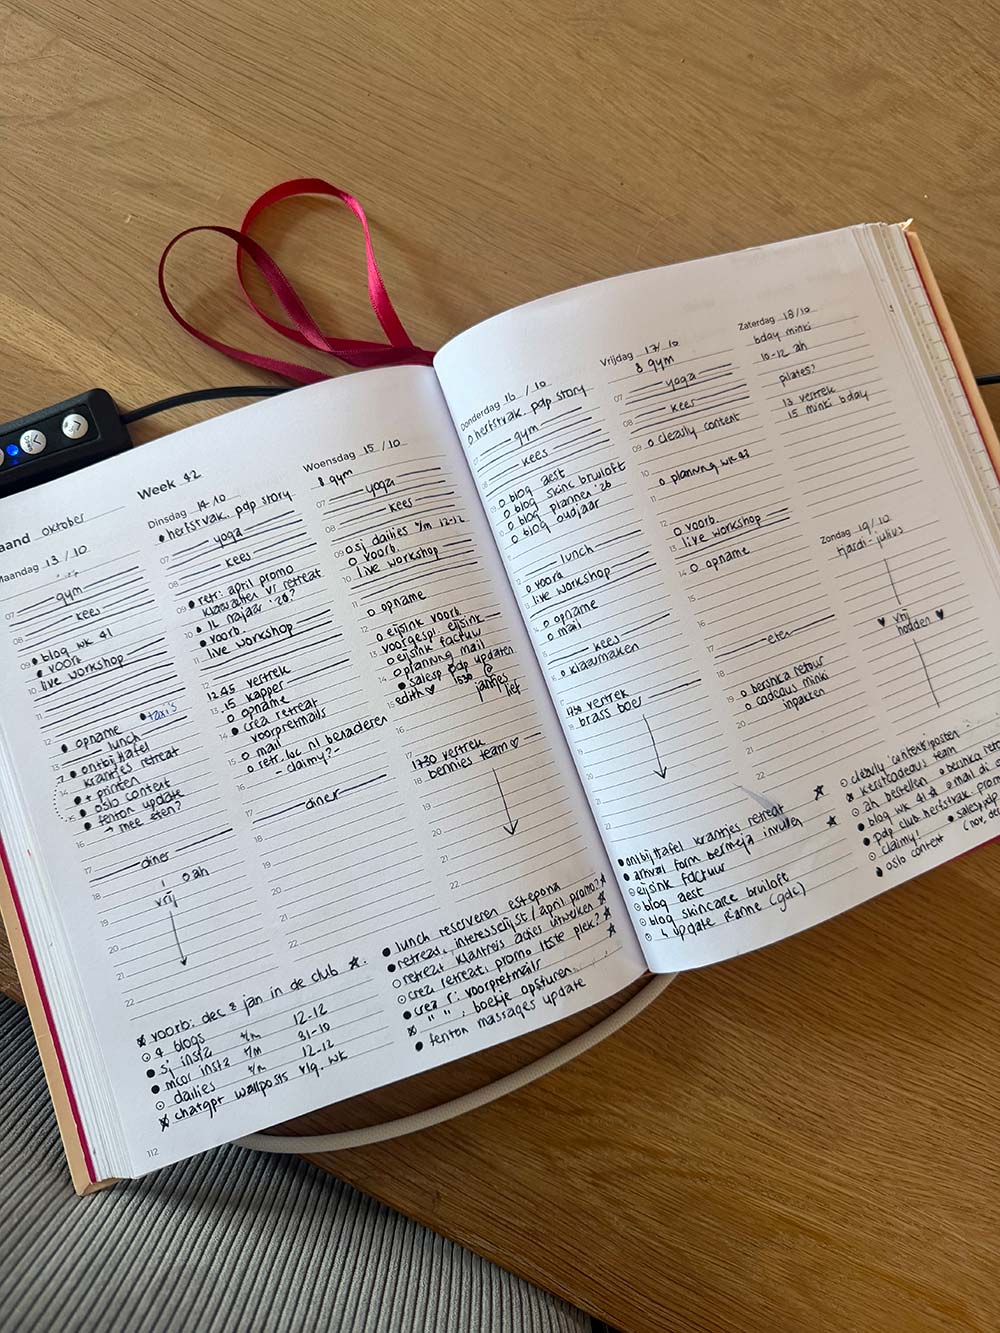 Week 42
aand oktober
Maandag 13/10
07 gym
08 kees
09 ● blog wk 41
● voorb.
10 live workshop
11
● taxi's
12 ● opname
lunch
13 ● ontbijttafel
krantjes retreat
14 ● + printen
● oslo content
● fenton update
→ mee eten?
16
17 diner
18 vrij oah
19
20
21
22
Dinsdag 14/10
● herfstvak. pdp story
07 yoga
08 kees
09 ● retr: april promo
klaarzetten v/ retreat
10 ● IL najaar '26?
● voorb.
11 live workshop
12 12.45 vertrek
13 .15 kapper
○ opname
14 ● crea retreat
voorpretmails
15 ○ mail
○ retr. loc nl benaderen
- claimy? -
17 diner
18
19
20
21
22
Woensdag 15/10
8 gym
07 yoga
08 kees
09 ○ sj dailies t/m 12-12
○ voorb.
10 live workshop
11 ○ opname
12 ○ eijsink voorb.
13 voorgespr. eijsink
○ eijsink factuur
14 ○ planning mail
● salesp. pdp updaten
15 edith ♡ 1530 @
jantjes
lief
16
17 1730 vertrek
18 bennies team ♡
19
20
21
22
Donderdag 16/10
○ herfstvak. pdp story
gym
kees
○ blog aest
○ blog skinc bruiloft
○ blog planner '26
○ blog oudjaar
lunch
○ voorb
live workshop
○ opname
○ mail
kees
○ klaarmaken
1730 vertrek
brass boer
Vrijdag 17/10
8 gym
07 yoga
08 kees
09 ○ cleaily content
10 ○ planning wk 43
11
12 ○ voorb.
13 live workshop
14 ○ opname
eten
○ bershka retour
○ cadeaus minki
inpakken
Zaterdag 18/10
bday minki
10-12 ah
pilates?
13 vertrek
15 minki bday
Zondag 19/10
♥ vrij
houden ♥
voorb: dec & jan in de club ★
⊙ 4 blogs 12-12
● sj insta t/m 31-10
● mcor insta t/m 12-12
⊙ dailies t/m
chatgpt wallposts vlg. wk
● lunch reserveren estepona
● retread, interesselijst / april promo? ★
⊙ retreat klantreis acties uitwerken ★
⊙ crea retreat, promo ltste plek? ★
● crea r: voorpretmails
" " , boekje opsturen
● fenton massages update
● ontbijttafel krantjes retreat ★
● arrival form bermeja invullen ★
⊙ eijsink factuur
● blog aest
⊙ blog skincare bruiloft
⊙ ↳ update Ranne (gdc)
⊙ cleaily contentkiposten
kerstcadeaus team
⊙ ah bestellen ⊙ bershka reto
● blog wk 41 & ○ mail di o
● pdp club herfstvak. prom
⊙ claimy! ● salesp. pdp
● oslo content (nov, de
112